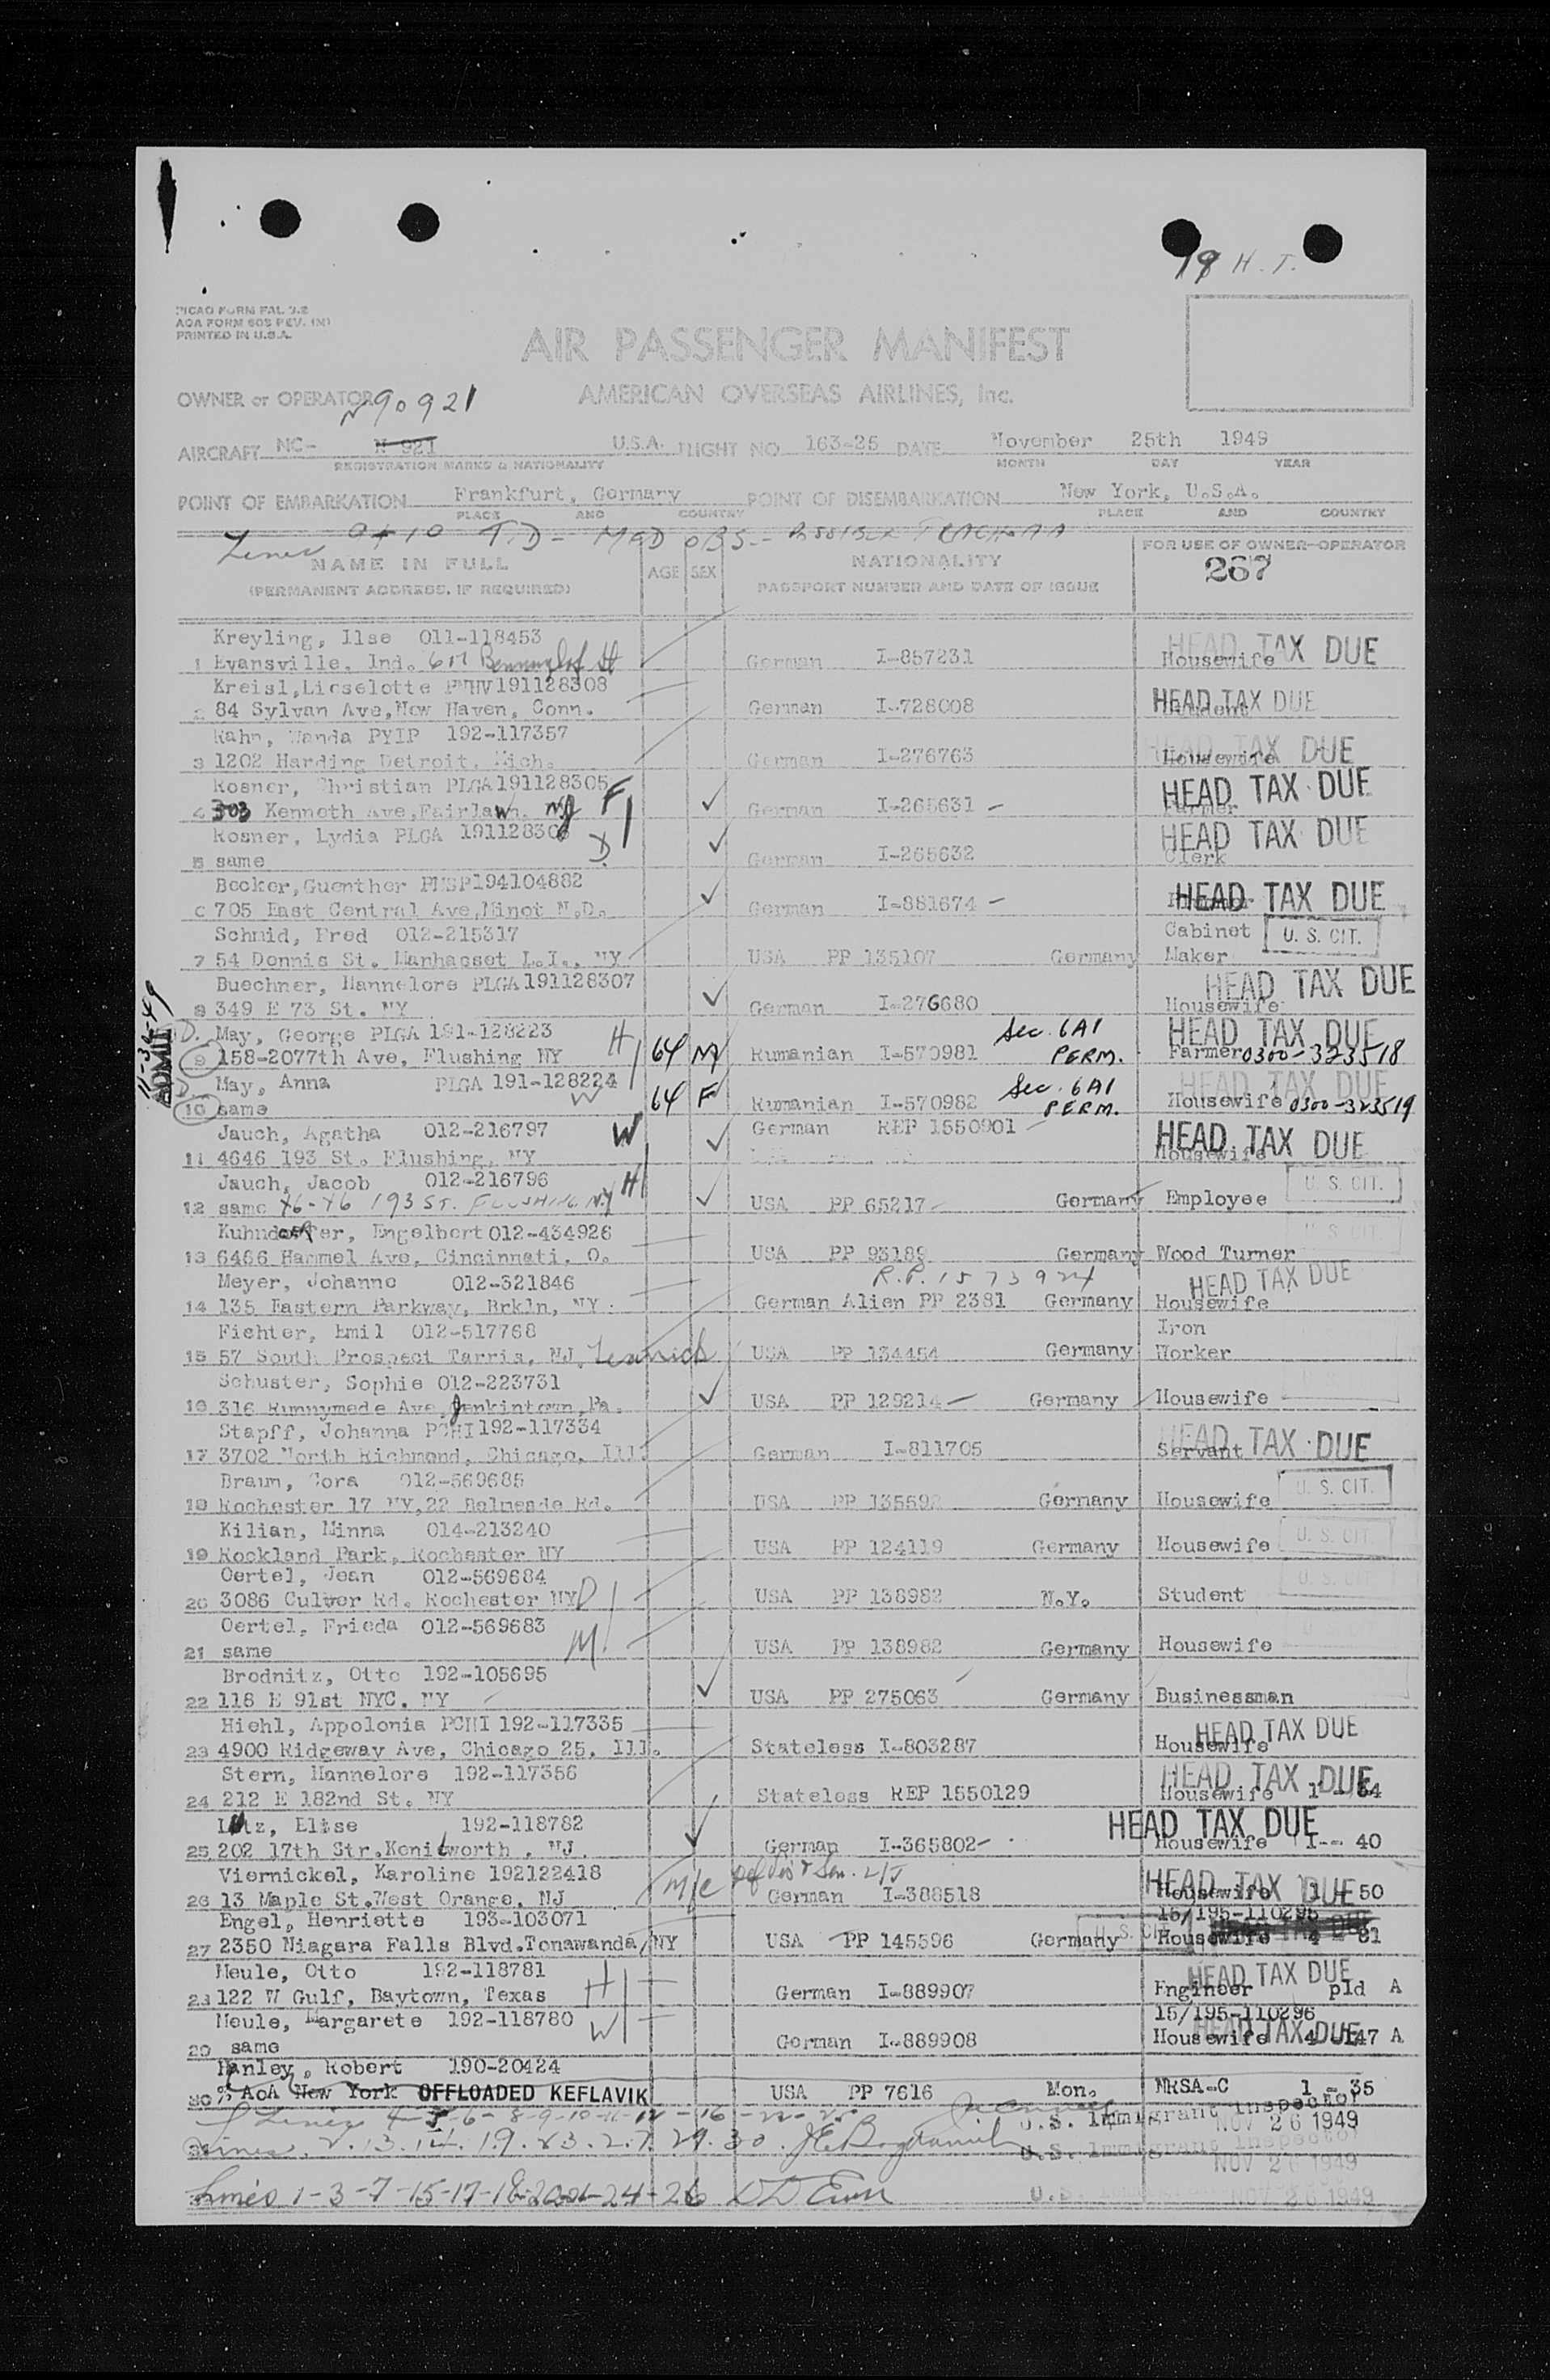 19 H.T.
PICAO FORM FAL 3.2
AOA FORM 603 REV. (M)
PRINTED IN U.S.A.
AIR PASSENGER MANIFEST
AMERICAN OVERSEAS AIRLINES, Inc.
OWNER or OPERATOR N90921
AIRCRAFT NC- N 921 U.S.A. FLIGHT NO 163-25 DATE November 25th 1949
REGISTRATION MARKS & NATIONALITY MONTH DAY YEAR
POINT OF EMBARKATION Frankfurt, Germany POINT OF DISEMBARKATION New York, U.S.A.
PLACE AND COUNTRY PLACE AND COUNTRY
Lines 9+10 T.D- MED OBS.- POSSIBLE TRACHOMA
NAME IN FULL AGE SEX NATIONALITY FOR USE OF OWNER-OPERATOR
(PERMANENT ADDRESS, IF REQUIRED) PASSPORT NUMBER AND DATE OF ISSUE 267
Kreyling, Ilse 011-118453 HEAD TAX DUE
1 Evansville, Ind. 617 St German I-857231 Housewife
Kreisl, Lieselotte PNHV191128308 HEAD TAX DUE
2 84 Sylvan Ave, New Haven, Conn. German I-728008 Student
Rahn, Wanda PYIP 192-117357 HEAD TAX DUE
3 1202 Harding Detroit, Mich. German I-276763 Housewife
Rosner, Christian PLGA191128305 F HEAD TAX DUE
4 303 Kenneth Ave, Fairlawn, NJ German I-265631 Farmer
Rosner, Lydia PLGA 191128306 D. HEAD TAX DUE
5 same German I-265632 Clerk
Becker, Guenther PMSP194104882 HEAD TAX DUE
6 705 East Central Ave, Minot N.D. German I-881674
Schmid, Fred 012-215317 Cabinet U. S. CIT.
7 54 Dennis St. Manhasset L.I., NY USA PP 135107 Germany Maker
Buechner, Hannelore PLGA191128307 HEAD TAX DUE
8 349 E 73 St. NY German I-276680 Housewife
D. May, George PLGA 191-128223 H Sec. 6A1 HEAD TAX DUE
9 158-2077th Ave, Flushing NY 64 M Rumanian I-570981 PERM. Farmer 0300-323518
May, Anna PLGA 191-128224 W Sec. 6A1 HEAD TAX DUE
10 same 64 F Rumanian I-570982 PERM. Housewife 0300-323519
ADMIT
Jauch, Agatha 012-216797 W German REP 1550901 HEAD TAX DUE
11 4646 193 St. Flushing, NY Housewife
Jauch, Jacob 012-216796 H U. S. CIT.
12 same 46-46 193 ST. FLUSHING N.Y USA PP 65217 Germany Employee
Kuhndoerfer, Engelbert 012-434926 U. S. CIT.
13 6466 Hammel Ave, Cincinnati, O. USA PP 93189 Germany Wood Turner
Meyer, Johanne 012-321846 R.P. 1573924 HEAD TAX DUE
14 135 Eastern Parkway, Brkln, NY German Alien PP 2381 Germany Housewife
Fichter, Emil 012-517768 Iron
15 57 South Prospect Tarris, NJ USA PP 134454 Germany Worker
Schuster, Sophie 012-223731
16 316 Runnymede Ave, Jenkintown, Pa. USA PP 129214 Germany Housewife
Stapff, Johanna PCHI192-117334 HEAD TAX DUE
17 3702 North Richmond, Chicago, Ill. German I-811705 Servant
Braun, Cora 012-569685 U. S. CIT.
18 Rochester 17 NY, 22 Belmeade Rd. USA PP 135592 Germany Housewife
Kilian, Minna 014-213240 U. S. CIT.
19 Rockland Park, Rochester NY USA PP 124119 Germany Housewife
Oertel, Jean 012-569684 U. S. CIT
20 3086 Culver Rd. Rochester NY D USA PP 138982 N.Y. Student
Oertel, Frieda 012-569683 M
21 same USA PP 138982 Germany Housewife
Brodnitz, Otto 192-105695
22 118 E 91st NYC. NY USA PP 275063 Germany Businessman
Hiehl, Appolonia PCHI 192-117335 HEAD TAX DUE
23 4900 Ridgeway Ave, Chicago 25, Ill. Stateless I-803287 Housewife
Stern, Hannelore 192-117356 HEAD TAX DUE
24 212 E 182nd St. NY Stateless REP 1550129 Housewife 1 - 34
Lutz, Elise 192-118782 HEAD TAX DUE
25 202 17th Str. Kenilworth, NJ. German I-365802 Housewife 1-- 40
Viernickel, Karoline 192122418 HEAD TAX DUE
26 13 Maple St. West Orange, NJ German I-388518 Housewife 1 - 50
Engel, Henriette 193-103071 15/195-110295
27 2350 Niagara Falls Blvd. Tonawanda, NY USA PP 145596 Germany U. S. CIT. Housewife 4 81
Meule, Otto 192-118781 H HEAD TAX DUE
28 122 W Gulf, Baytown, Texas German I-889907 Engineer pld A
Meule, Margarete 192-118780 W 15/195-110296 HEAD TAX DUE
29 same German I-889908 Housewife 4 147 A
Hanley, Robert 190-20424
30 % AOA New York OFFLOADED KEFLAVIK USA PP 7616 Mon. NRSA-C 1 - 35
Lines 4-5-6-8-9-10-11-12-16-22-25 U.S. Immigrant Inspector
NOV 26 1949
Lines. 2.13.14.19.23.27.29.30 U.S. Immigrant Inspector
NOV 26 1949
Lines 1-3-7-15-17-18-20-21-24-26 U.S.
NOV 26 1949